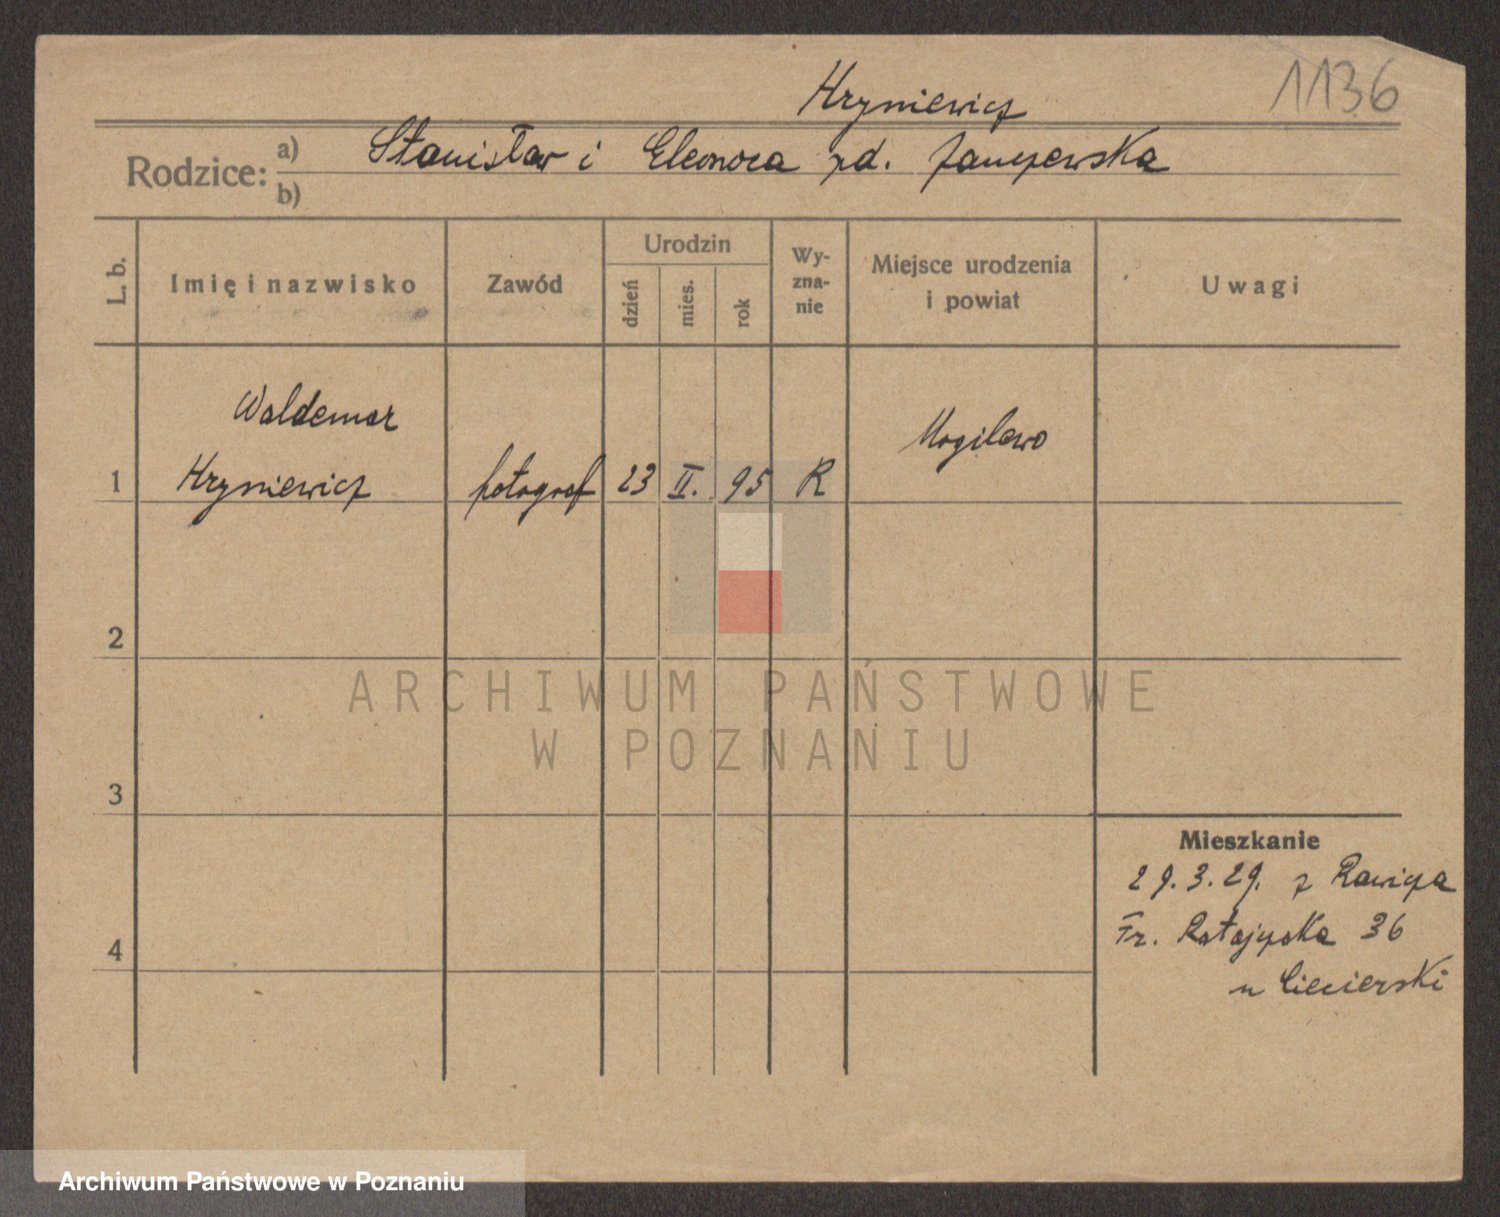 Hryniewicz
1136
Rodzice: a) Stanisław i Eleonora zd.
b)
L. b.
Imię i nazwisko
Zawód
Urodzin
dzień
mies.
rok
Wy-
zna-
nie
Miejsce urodzenia
i powiat
Uwagi
Waldemar
1 Hryniewicz fotograf 23 II. 95 R
Mogilewo
2
3
4
Mieszkanie
29.3.29. z Rawicza
Fr. Ratajczaka 36
u Ciecierski
ARCHIWUM PAŃSTWOWE
W POZNANIU
Archiwum Państwowe w Poznaniu